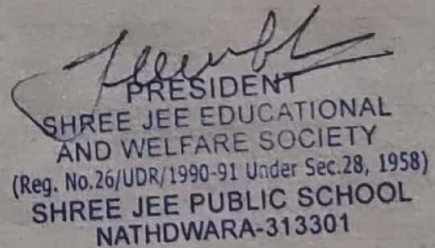 PRESIDENT
SHREE JEE EDUCATIONAL
AND WELFARE SOCIETY
(Reg. No.26/UDR/1990-91 Under Sec.28, 1958)
SHREE JEE PUBLIC SCHOOL
NATHDWARA-313301